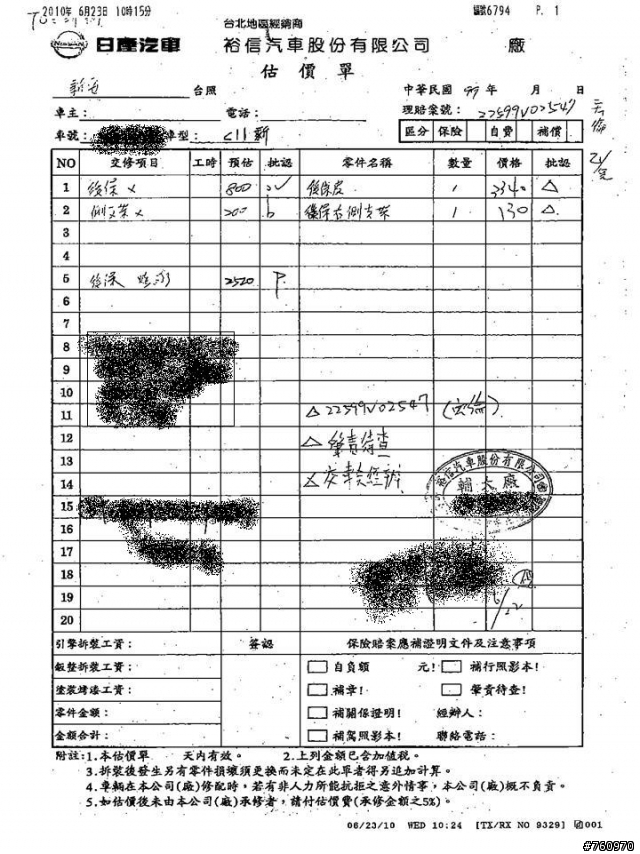 2010年 6月23日 10時15分
編號6794 P. 1
台北地區經銷商
NISSAN 日產汽車 裕信汽車股份有限公司 廠
估價單
台照 中華民國 99 年 月 日
車主： 電話： 理賠案號：22599V02547
車號： 車型： C11新 區分 保險 自費 補價
NO 交修項目 工時 預估 批認 零件名稱 數量 價格 批認
1 後保 × 800 後保皮 1 3340 △
2 側支架 × 200 b 後保右側支架 1 130 △
3
4
5 後保 2520 P
6
7
8
9
10
11 △22599V02547
12 △肇責待查
13
14
裕信汽車股份有限公司
輔大廠
15
16
17
18
19 6/22
20
引擎拆裝工資： 簽認 保險賠案應補證明文件及注意事項
鈑整拆裝工資： □ 自負額 元! □ 補行照影本!
塗裝烤漆工資： □ 補章! □ 肇責待查!
零件金額： □ 補關係證明! 經辦人：
金額合計： □ 補駕照影本! 聯絡電話：
附註：1.本估價單 天內有效。 2.上列金額已含加值稅。
3.拆裝後發生另有零件損壞須更換而未定在此單者得另追加計算。
4.車輛在本公司(廠)修配時，若有非人力所能抗拒之意外情事，本公司(廠)概不負責。
5.如估價後未由本公司(廠)承修者，請付估價費(承修金額之5%)。
06/23/10 WED 10:24 [TX/RX NO 9329] 001
#760970